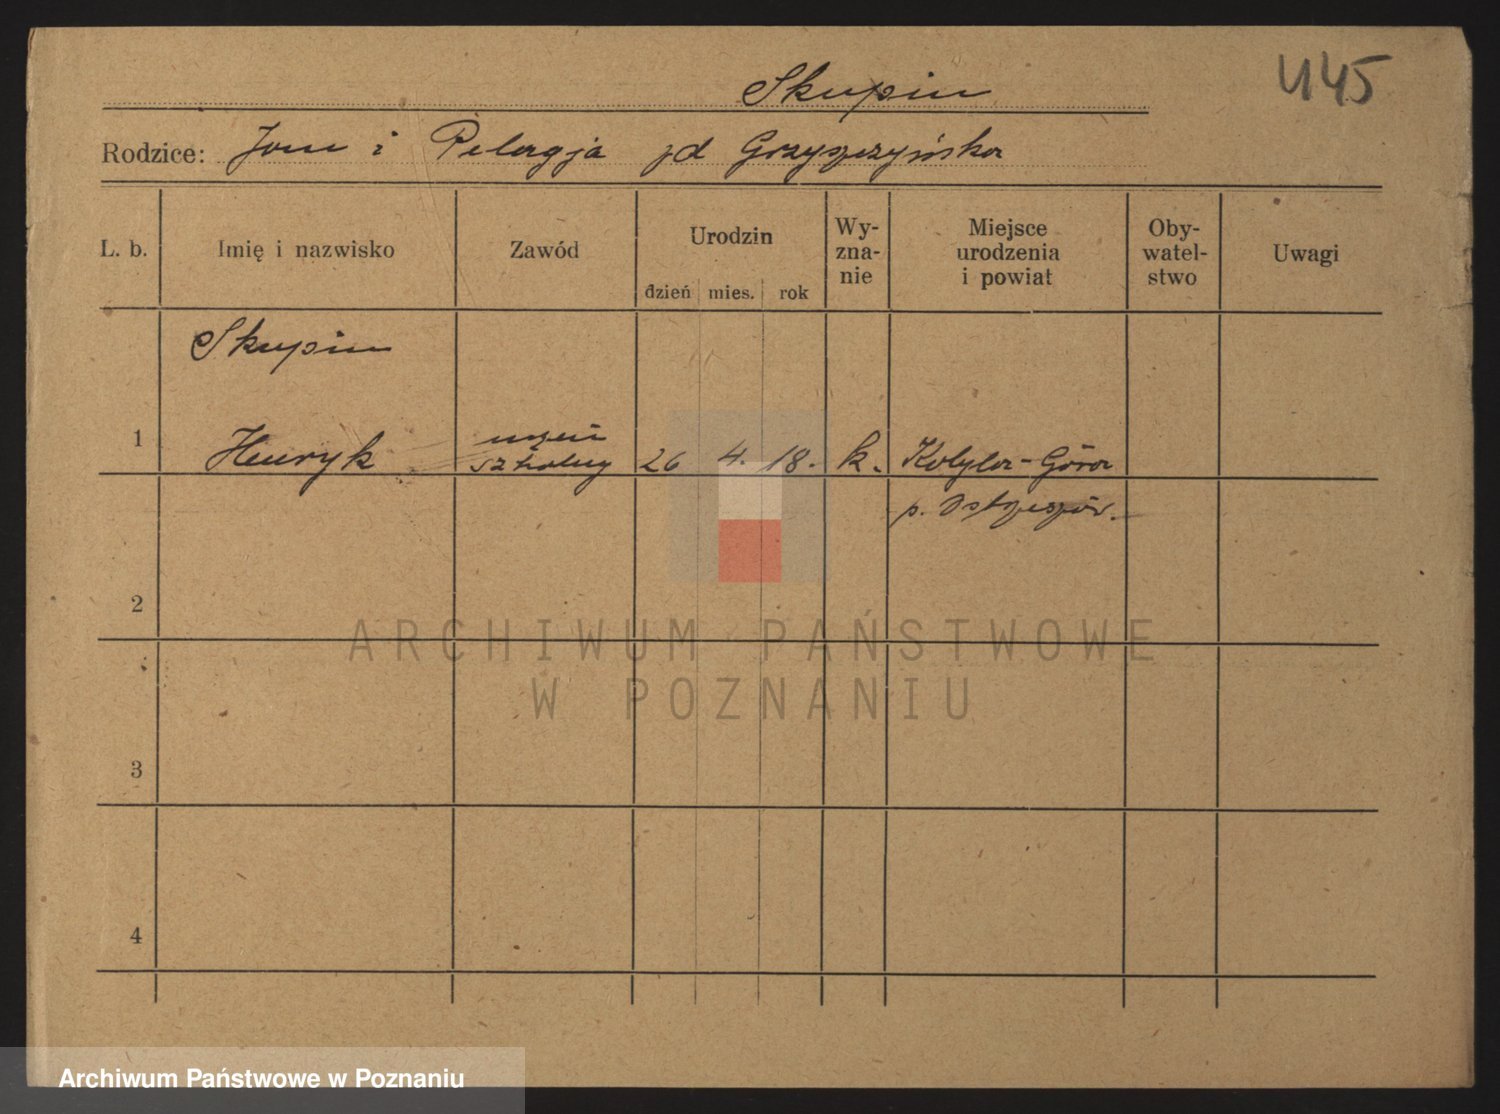 445
Skupin
Rodzice: Jan i Pelagja zd Grzyszczyńska
L. b.
Imię i nazwisko
Zawód
Urodzin
dzień mies. rok
Wy-
zna-
nie
Miejsce
urodzenia
i powiat
Oby-
watel-
stwo
Uwagi
Skupin
1 Henryk uczeń szkolny 26 4. 18. k. Kobyla-Góra
p. Ostrzeszów.
2
ARCHIWUM PAŃSTWOWE
W POZNANIU
3
4
Archiwum Państwowe w Poznaniu